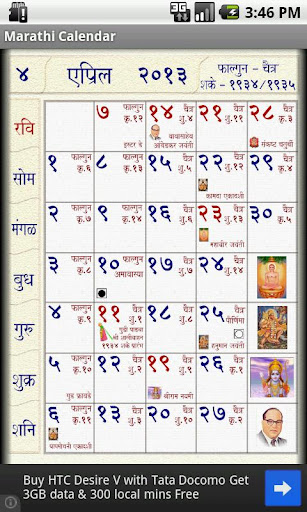 3G 3:46 PM
Marathi Calendar
४ एप्रिल २०१३ फाल्गुन - चैत्र
शके - १९३४/१९३५
रवि ७ फाल्गुन कृ.१२ १४ चैत्र शु.४ २१ चैत्र शु.११ २८ चैत्र कृ.३
इस्टर डे बाबासाहेब आंबेडकर जयंती संकष्ट चतुर्थी
सोम १ फाल्गुन ८ फाल्गुन कृ.१३ १५ चैत्र शु.५ २२ चैत्र २९ चैत्र
कामदा एकादशी
मंगळ २ फाल्गुन ९ फाल्गुन कृ.१४ १६ चैत्र शु.६ २३ चैत्र शु.१३ ३० चैत्र कृ.५
महावीर जयंती
बुध ३ फाल्गुन कृ.८ १० फाल्गुन अमावास्या १७ चैत्र शु.७ २४ चैत्र शु.१४
गुरु ४ फाल्गुन कृ.९ ११ चैत्र शु.१ १८ चैत्र शु.८ २५ चैत्र पौर्णिमा
गुढी पाडवा १९३५ शके प्रारंभ हनुमान जयंती
शुक्र ५ फाल्गुन कृ.१० १२ चैत्र शु.२ १९ चैत्र शु.९ २६ चैत्र कृ.१
गुड फ्रायडे श्रीराम नवमी
शनि ६ फाल्गुन कृ.११ १३ चैत्र शु.३ २० चैत्र शु.१० २७ चैत्र कृ.२
पापमोचनी एकादशी
Buy HTC Desire V with Tata Docomo Get
3GB data & 300 local mins Free